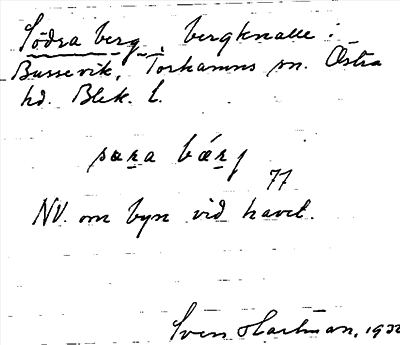 Södra berg, bergknalle i
Bussevik, Torhamns sn. Östra
hd. Blek. l.
særa bǽrj
77
NV. om byn vid havet.
Sven Hartman, 1932